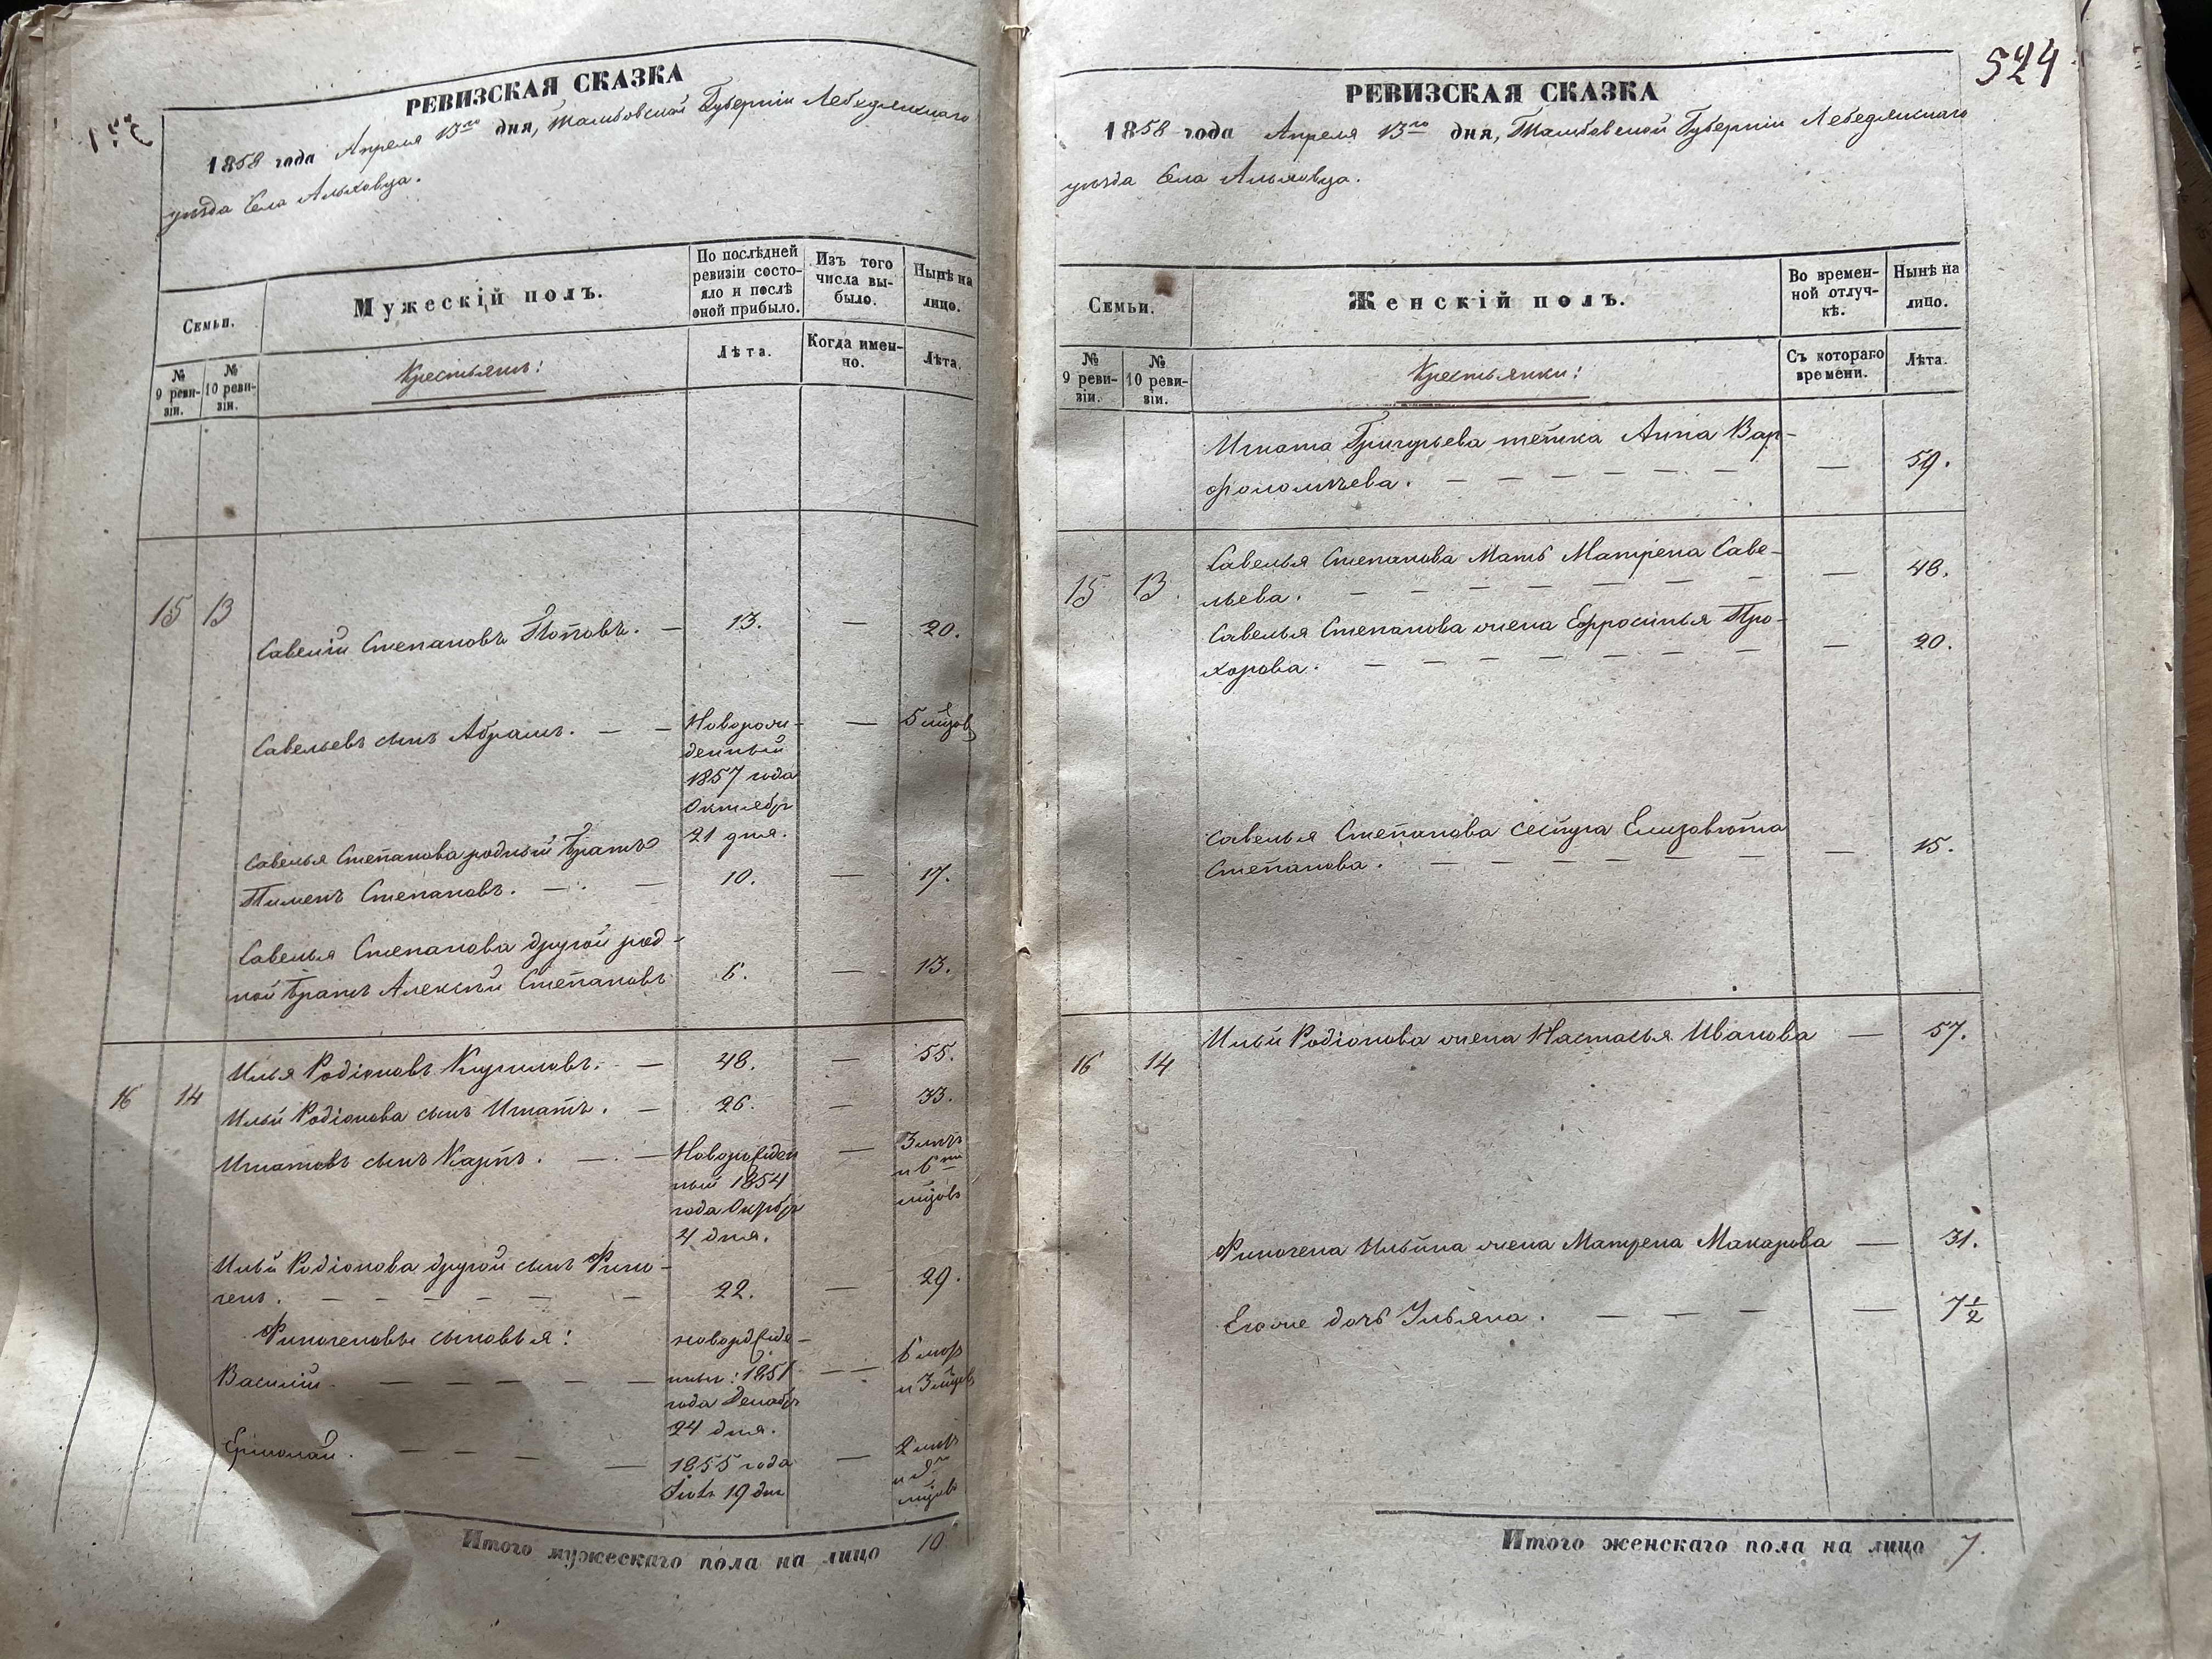 РЕВИЗСКАЯ СКАЗКА
1858 года Апреля 13го дня, Тамбовской Губерніи Лебедянскаго
уѣзда Села Альховца.
Семьи.
Мужескій полъ.
По послѣдней
ревизіи состо-
яло и послѣ
оной прибыло.
Изъ того
числа вы-
было.
Нынѣ на
лицо.
№
9 реви-
зіи.
№
10 реви-
зіи.
Крестьянъ:
Лѣта.
Когда имен-
но.
Лѣта.
15 13 Савелій Степановъ Поповъ. — 13. — 20.
Савельевъ сынъ Абрамъ. — — Новорож-
денный
1857 года
Октябр
21 дня.
— 5 мцовъ
Савелья Степанова родный братъ
Пименъ Степановъ. — — 10. — 17.
Савелья Степанова другой род-
ной братъ Алексѣй Степановъ 6. — 13.
16 14 Илья Родіоновъ Кириловъ. — 48. — 55.
Ильи Родіонова сынъ Игнатъ. — 26. — 33.
Игнатовъ сынъ Карпъ. — — Новорожден
ный 1854
года Октбр
4 дня.
— 3 лѣтъ
и 6ти
мцовъ
Ильи Родіонова другой сынъ Фино-
генъ. — — — — — — 22. — 29.
Финогеновы сыновья:
Василій — — — — — новорожде-
нны: 1851
года Декабр
24 дня.
— — 6 лѣтъ
и 3 мцовъ
Ермолай. — — — — 1855 года
19 дня
— 2 лѣтъ
и
мцовъ
Итого мужескаго пола на лицо 10
524
РЕВИЗСКАЯ СКАЗКА
1858 года Апреля 13го дня, Тамбовской Губерніи Лебедянскаго
уѣзда Села Альховца.
Семьи.
Женскій полъ.
Во времен-
ной отлуч-
кѣ.
Нынѣ на
лицо.
№
9 реви-
зіи.
№
10 реви-
зіи.
Крестьянки:
Съ котораго
времени.
Лѣта.
Игната Григорьева тетка Анна Вар-
фоломѣева. — — — — — — — — 59.
15 13. Савелья Степанова Мать Матрена Саве-
льева. — — — — — — — — 48.
Савелья Степанова жена Ефросинья Про-
хорова. — — — — — — — — 20.
Савелья Степанова сестра Елизовѣта
Степанова. — — — — — — — 15.
16 14 Ильи Родіонова жена Настасья Иванова — 57.
Финогена Ильина жена Матрена Макарова — 31.
Егоже дочь Ульяна. — — — — 7 1/2
Итого женскаго пола на лицо 7.